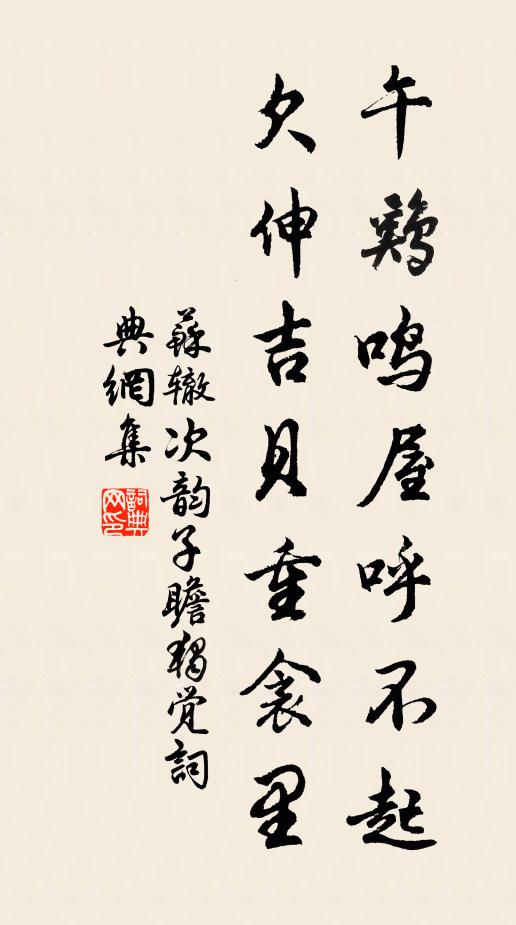 午鷄鸣屋呼不起
欠伸吉貝重衾里
蘇辙次韵子瞻獨觉詞
典網集
詞典
网印